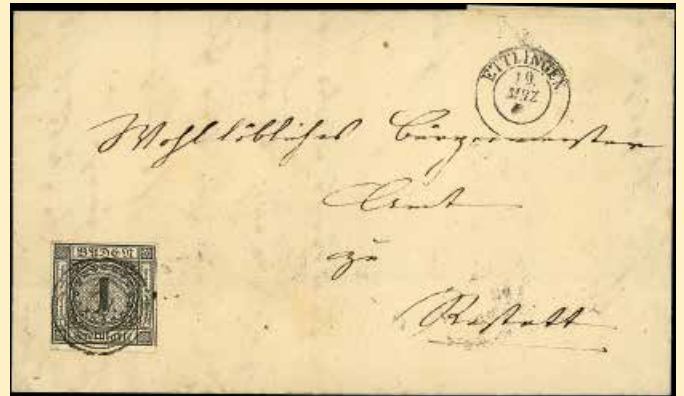 ETTLINGEN
19.
MRZ
Wohllöbliches Bürgermeister
Amt
zu
Rastatt
BADEN
1